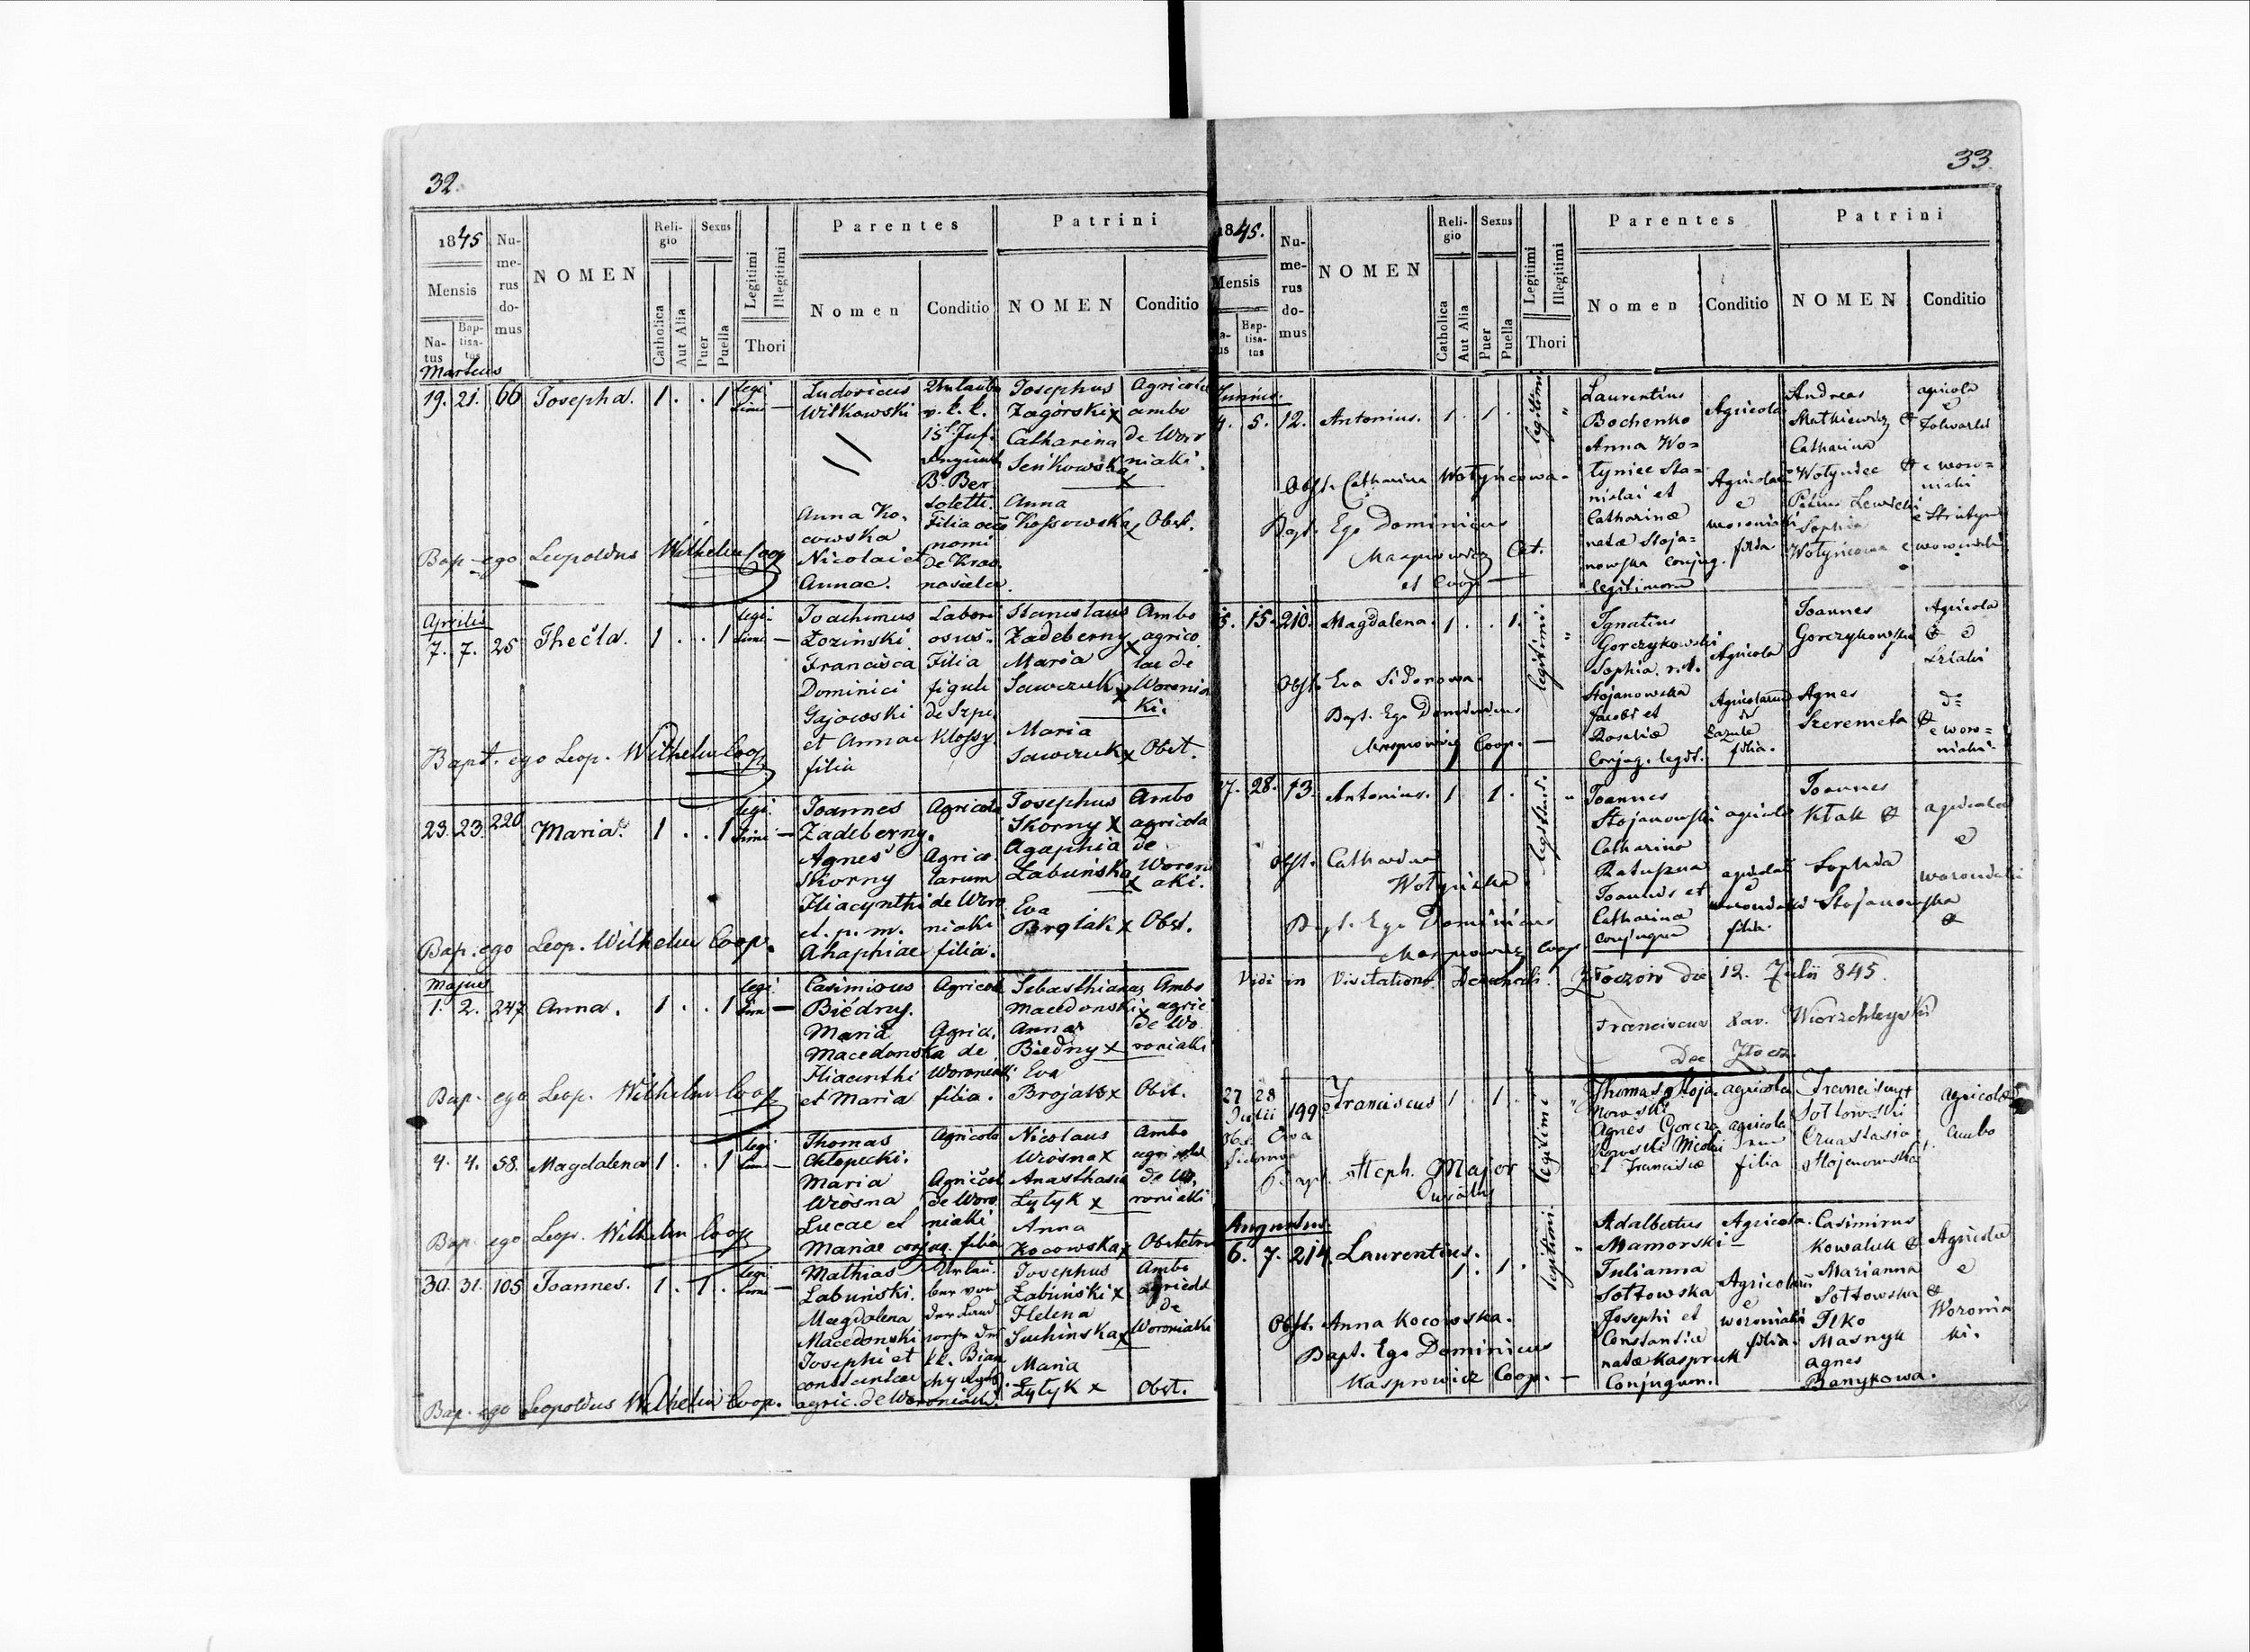 32.
1845
Mensis
Na-
tus
Bap-
tisa-
tus
Nu-
me-
rus
do-
mus
NOMEN
Reli-
gio
Catholica
Aut Alia
Sexus
Puer
Puella
Legitimi
Illegitimi
Thori
Parentes
Nomen
Conditio
Patrini
NOMEN
Conditio
Martius
19. 21. 66 Josepha. 1 . . 1 legi
timi —
Ludovicus
Witkowski
Anna Ko-
cowska
Nicolai et
Annae.
Filia
nomi
Josephus
Zagórski x
Catharina
Senkowska
x
Anna
Kossowska x
Agricola
ambo
de Woro
niaki.
Obst.
Bap. ego Leopoldus Wilhelm Coop
Aprilis
7. 7. 25 Thecla. 1 . . 1 legi-
timi —
Joachimus
Łozinski
Francisca
Dominici
Gajowski
et Annae
filia
Labori
osus.
Filia
figuli
Stanislaus
Zadeberny x
Maria
Sawczuk x
Maria
Sawczuk x
Ambo
agrico
lae de
Woronia
ki.
Obst.
Bapt. ego Leop. Wilhelm Coop
23. 23. 220 Maria. 1 . . 1 legi.
timi —
Joannes
Zadeberny.
Agnes
Skorny
Hiacynthi
et. p. m.
Ahaphiae
Agricola
Agrico
larum
de Woro
niaki
filia.
Josephus
Skorny x
Agaphia
Łabuńska
x
Eva
Brojak x
Ambo
agricola
de
Woroni
aki.
Obst.
Bap. ego Leop. Wilhelm Coop.
Majus
1. 2. 247 Anna. 1 . . 1 legi
timi —
Casimirus
Biédny.
Maria
Macedonska
Hiacinthi
et Maria
Agricol
Agric.
de
Woroniaki
filia.
Sebasthianus
Macedonski x
Anna
Biédny x
Eva
Brojak x
Ambo
agric
de Wo
roniaki
Obst.
Bap. ego Leop. Wilhelm Coop
4. 4. 58. Magdalena 1 . . 1 legi
timi —
Thomas
Chłopecki.
Maria
Wrosna
Lucae et
Mariae conjug. filia
Agricola
Agricol
de Woro
niaki
Nicolaus
Wrosna x
Anasthasia
Łytyk x
Anna
Kocowska x
Ambo
de Wo
roniaki
Obstetrix
Bap. ego Leop. Wilhelm Coop
30. 31. 105 Joannes. 1 . 1 . legi
timi —
Mathias
Łabuński.
Magdalena
Macedonski
Josephi et
constantiae
agric. de Woroniaki.
Urlau.
ber von
der Land
Josephus
Łabuński x
Helena
Suchinska x
Maria
Łytyk x
Ambo
agricolae
de
Woroniaki
Obst.
Bap. ego Leopoldus Wilhelm Coop.
33.
1845.
Mensis
Bap-
tisa-
tus
Nu-
me-
rus
do-
mus
NOMEN
Reli-
gio
Catholica
Aut Alia
Sexus
Puer
Puella
Legitimi
Illegitimi
Thori
Parentes
Nomen
Conditio
Patrini
NOMEN
Conditio
Junius.
4. 5. 12. Antonius. 1 . 1 . legitimi "
Laurentius
Bochenko
Anna Wo=
łyniec Sta=
nislai et
Catharinæ
natæ Stoja=
nowska conjug.
legitimor
Agricola
filia
Andreas
Matkiewicz
Catharina
Wołyniec
Sophia
agricola
e woro=
niaki
Obst. Catharina Wołyńcowa.
Bapt. Ego Dominicus
et Coop —
15. 15. 210. Magdalena. 1 . . 1. legitimi. "
Ignatius
Gorczykowski
Sophia n.t.
Stojanowska
Jacobi et
Rosaliæ
conjug. legit.
Agricola
Agricolarum
filia.
Joannes
Gorczykowski
Agnes
Szeremeta
Agricola
e woro=
niaki.
Obst. Eva Sidorowa.
Bapt. Ego Dominicus
Kasprowicz Coop. —
27. 28. 73. Antonius. 1 . 1 . legitimi. "
Joannes
Stojanowski
Catharina
Joannis et
Catharina
conjugum
agricola
filia.
Joannes
Kłak
Sophia
Stojanowska
agricola
e
woroniaki
Obst. Catharina
Bapt. Ego Dominicus
Kasprowicz Coop
Vidi in Visitatione Decanali. Złoczów die 12. Julii 845.
Franciscus Xav. Wierzchleyski
Dec Złocz.
27 28
Julii 199 Franciscus 1 . 1 . legitimi "
Thomas Stoja.
nowski
Agnes Gorczy
kowski Nicolai
et Franciscæ
agricola
agricola
rum
filia
Franciscus
Sottowski
Anastasia
Stojanowska
agricolae
ambo
Obs. Eva
Sidorowa
Bapt. Steph. Major
Augustus.
6. 7. 214. Laurentius. 1 . 1 . legitimi. "
Adalbertus
Mamorski —
Julianna
Sottowska
Josephi et
Constantiæ
natæ Kaspruk
Conjugum.
Agricola.
Agricolarū
e
woroniaki
filia.
Casimirus
Kowaluk
Marianna
Sottowska
Ilko
Masnyk
Agnes
Banykowa.
Agricola
e
Woronia
ki.
Obst. Anna Kocowska.
Bapt. Ego Dominicus
Kasprowicz Coop. —